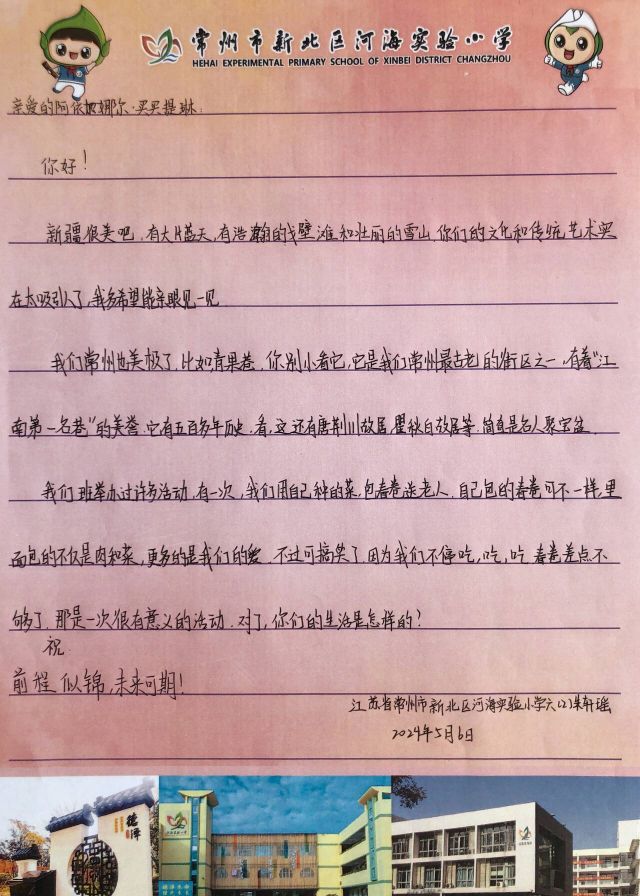 常州市新北区河海实验小学
HEHAI EXPERIMENTAL PRIMARY SCHOOL OF XINBEI DISTRICT CHANGZHOU
亲爱的阿依娜尔·买买提琳:
你好!
新疆很美吧,有大片蓝天,有浩瀚的戈壁滩和壮丽的雪山,你们的文化和传统艺术实
在太吸引人了,我多希望能亲眼见一见.
我们常州也美极了,比如青果巷,你别小看它,它是我们常州最古老的街区之一,有着“江
南第一名巷”的美誉,它有五百多年历史.看,这还有唐荆川故居,瞿秋白故居等,简直是名人聚宝盆.
我们班举办过许多活动,有一次,我们用自己种的菜,包春卷送老人,自己包的春卷可不一样,里
面包的不仅是肉和菜,更多的是我们的爱.不过可搞笑了,因为我们不停吃,吃,吃,春卷差点不
够了.那是一次很有意义的活动.对了,你们的生活是怎样的?
祝
前程似锦,未来可期!
江苏省常州市新北区河海实验小学六(2)吴轩瑶
2024年5月6日
德泽